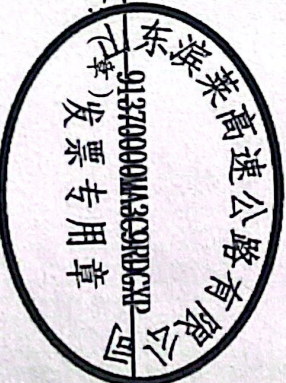 东滨莱高速公路有限公司
91370000MA3C9RDGXP
章)
发票专用章